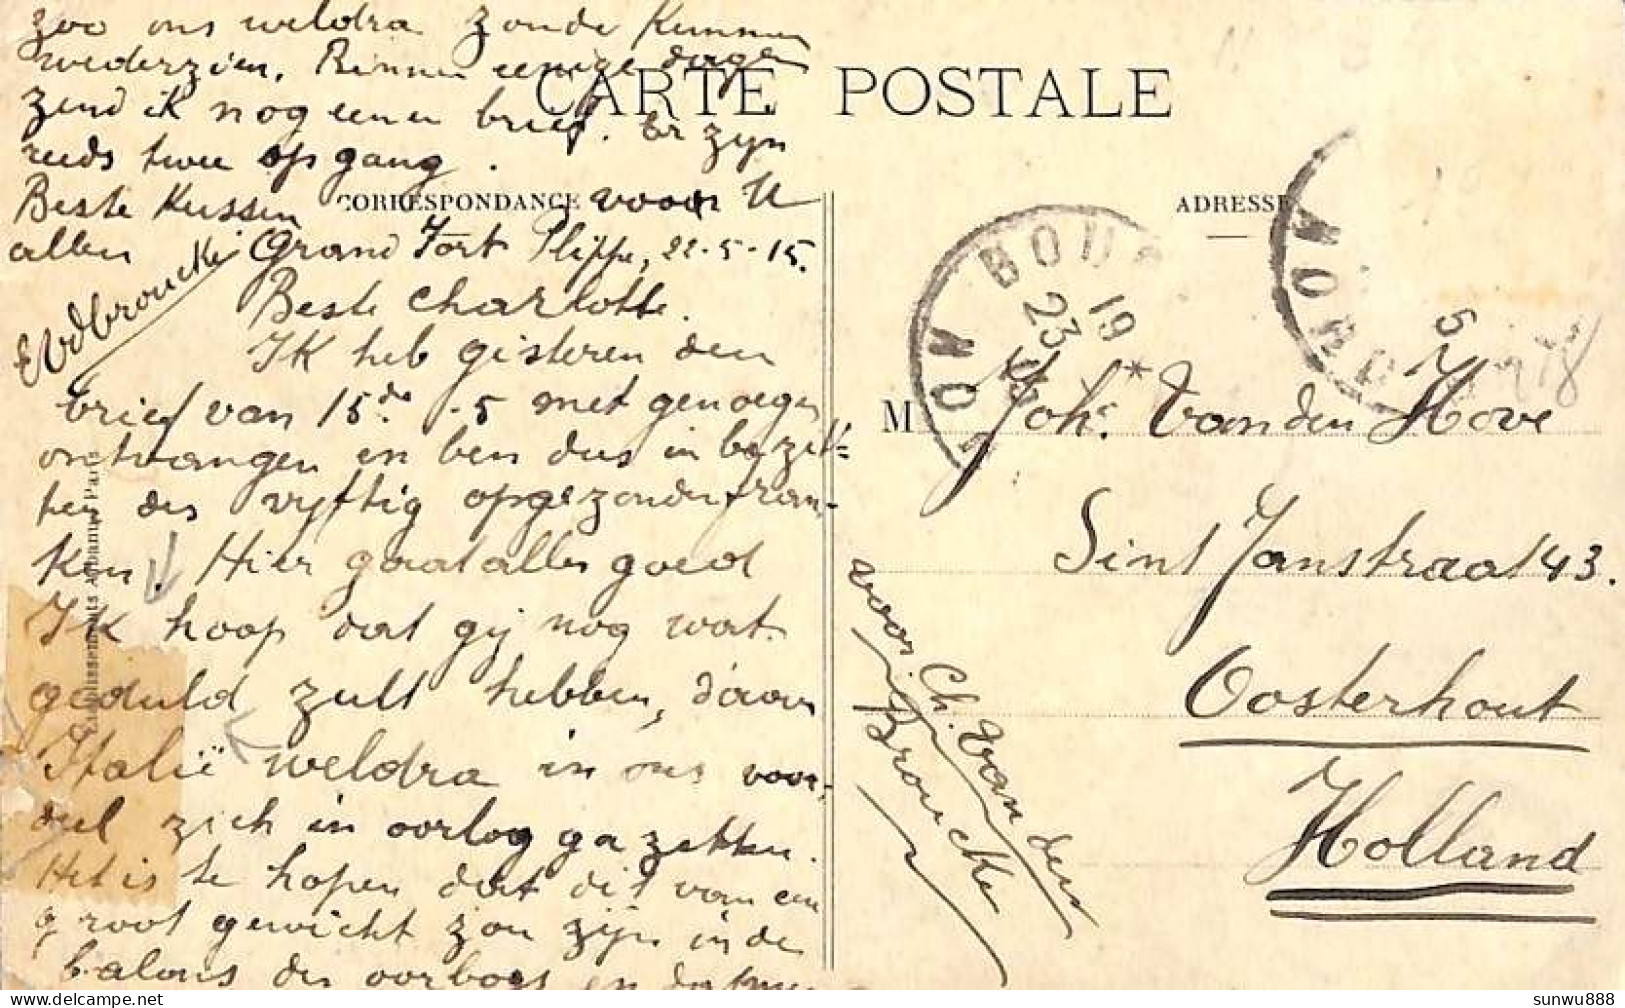 zoo ons weldra zonde kunnen
wederzien. Binnen eenige dagen
zend ik nog eenen brief. Er zyn
reeds twee op gang.
Beste Kussen voor U
allen
EVdbroucke
CARTE POSTALE
CORRESPONDANCE
ADRESSE
Grand Fort Plippe, 22-5-15.
Beste Charlotte.
Ik heb gisteren den
brief van 15de -5 met genoegen
ontvangen en ben dus in bezit=
ten der vyftig opgezonden fran-
ken. Hier gaat alles goed
Ik hoop dat gij nog wat
geduld zult hebben, daar
Italië weldra in ons voor-
deel zich in oorlog ga zetten.
Het is te hopen dat dit van een
groot gewicht zou zijn in de
balans des oorlogs en dat
Etablissements Paris
M Joh. Van den Hove
Sint Janstraat 43.
Oosterhout
Holland
voor Ch. Van den
Broucke
BOU
19
23
5
NORD
sunwu888